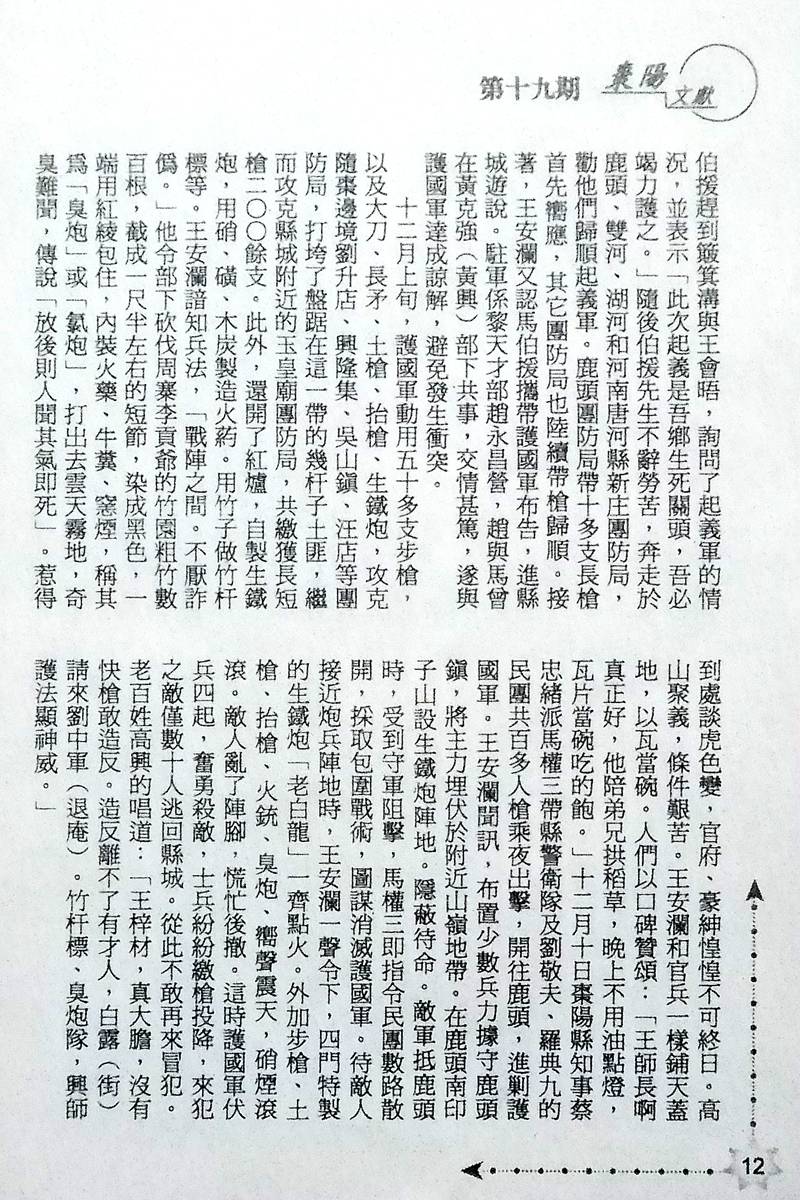 第十九期 棗陽文獻
伯援趕到簸箕溝與王會晤，詢問了起義軍的情
況，並表示「此次起義是吾鄉生死關頭，吾必
竭力護之。」隨後伯援先生不辭勞苦，奔走於
鹿頭、雙河、湖河和河南唐河縣新庄團防局，
勸他們歸順起義軍。鹿頭團防局帶十多支長槍
首先嚮應，其它團防局也陸續帶槍歸順。接
著，王安瀾又認馬伯援攜帶護國軍布告，進縣
城遊說。駐軍係黎天才部趙永昌營，趙與馬曾
在黃克強（黃興）部下共事，交情甚篤，遂與
護國軍達成諒解，避免發生衝突。
十二月上旬，護國軍動用五十多支步槍，
以及大刀、長矛、土槍、抬槍、生鐵炮，攻克
隨棗邊境劉升店、興隆集、吳山鎮、汪店等團
防局，打垮了盤踞在這一帶的幾杆子土匪，繼
而攻克縣城附近的玉皇廟團防局，共繳獲長短
槍二〇〇餘支。此外，還開了紅爐，自製生鐵
炮，用硝、磺、木炭製造火葯。用竹子做竹杆
標等。王安瀾諳知兵法，「戰陣之間。不厭詐
僞。」他令部下砍伐周寨李貢爺的竹園粗竹數
百根，截成一尺半左右的短節，染成黑色，一
端用紅綾包住，內裝火藥、牛糞、窰煙，稱其
爲「臭炮」或「氯炮」，打出去雲天霧地，奇
臭難聞，傳說「放後則人聞其氣即死」。惹得
到處談虎色變，官府、豪紳惶惶不可終日。高
山聚義，條件艱苦。王安瀾和官兵一樣鋪天蓋
地，以瓦當碗。人們以口碑贊頌：「王師長啊
真正好，他陪弟兄拱稻草，晚上不用油點燈，
瓦片當碗吃的飽。」十二月十日棗陽縣知事蔡
忠緒派馬權三帶縣警衛隊及劉敬夫、羅典九的
民團共百多人槍乘夜出擊，開往鹿頭，進剿護
國軍。王安瀾聞訊，布置少數兵力據守鹿頭
鎮，將主力埋伏於附近山嶺地帶。在鹿頭南印
子山設生鐵炮陣地。隱蔽待命。敵軍抵鹿頭
時，受到守軍阻擊，馬權三即指令民團數路散
開，採取包圍戰術，圖謀消滅護國軍。待敵人
接近炮兵陣地時，王安瀾一聲令下，四門特製
的生鐵炮「老白龍」一齊點火。外加步槍、土
槍、抬槍、火銃、臭炮、嚮聲震天，硝煙滾
滾。敵人亂了陣腳，慌忙後撤。這時護國軍伏
兵四起，奮勇殺敵，士兵紛紛繳槍投降，來犯
之敵僅數十人逃回縣城。從此不敢再來冒犯。
老百姓高興的唱道：「王梓材，真大膽，沒有
快槍敢造反。造反離不了有才人，白露（街）
請來劉中軍（退庵）。竹杆標、臭炮隊，興師
護法顯神威。」
12